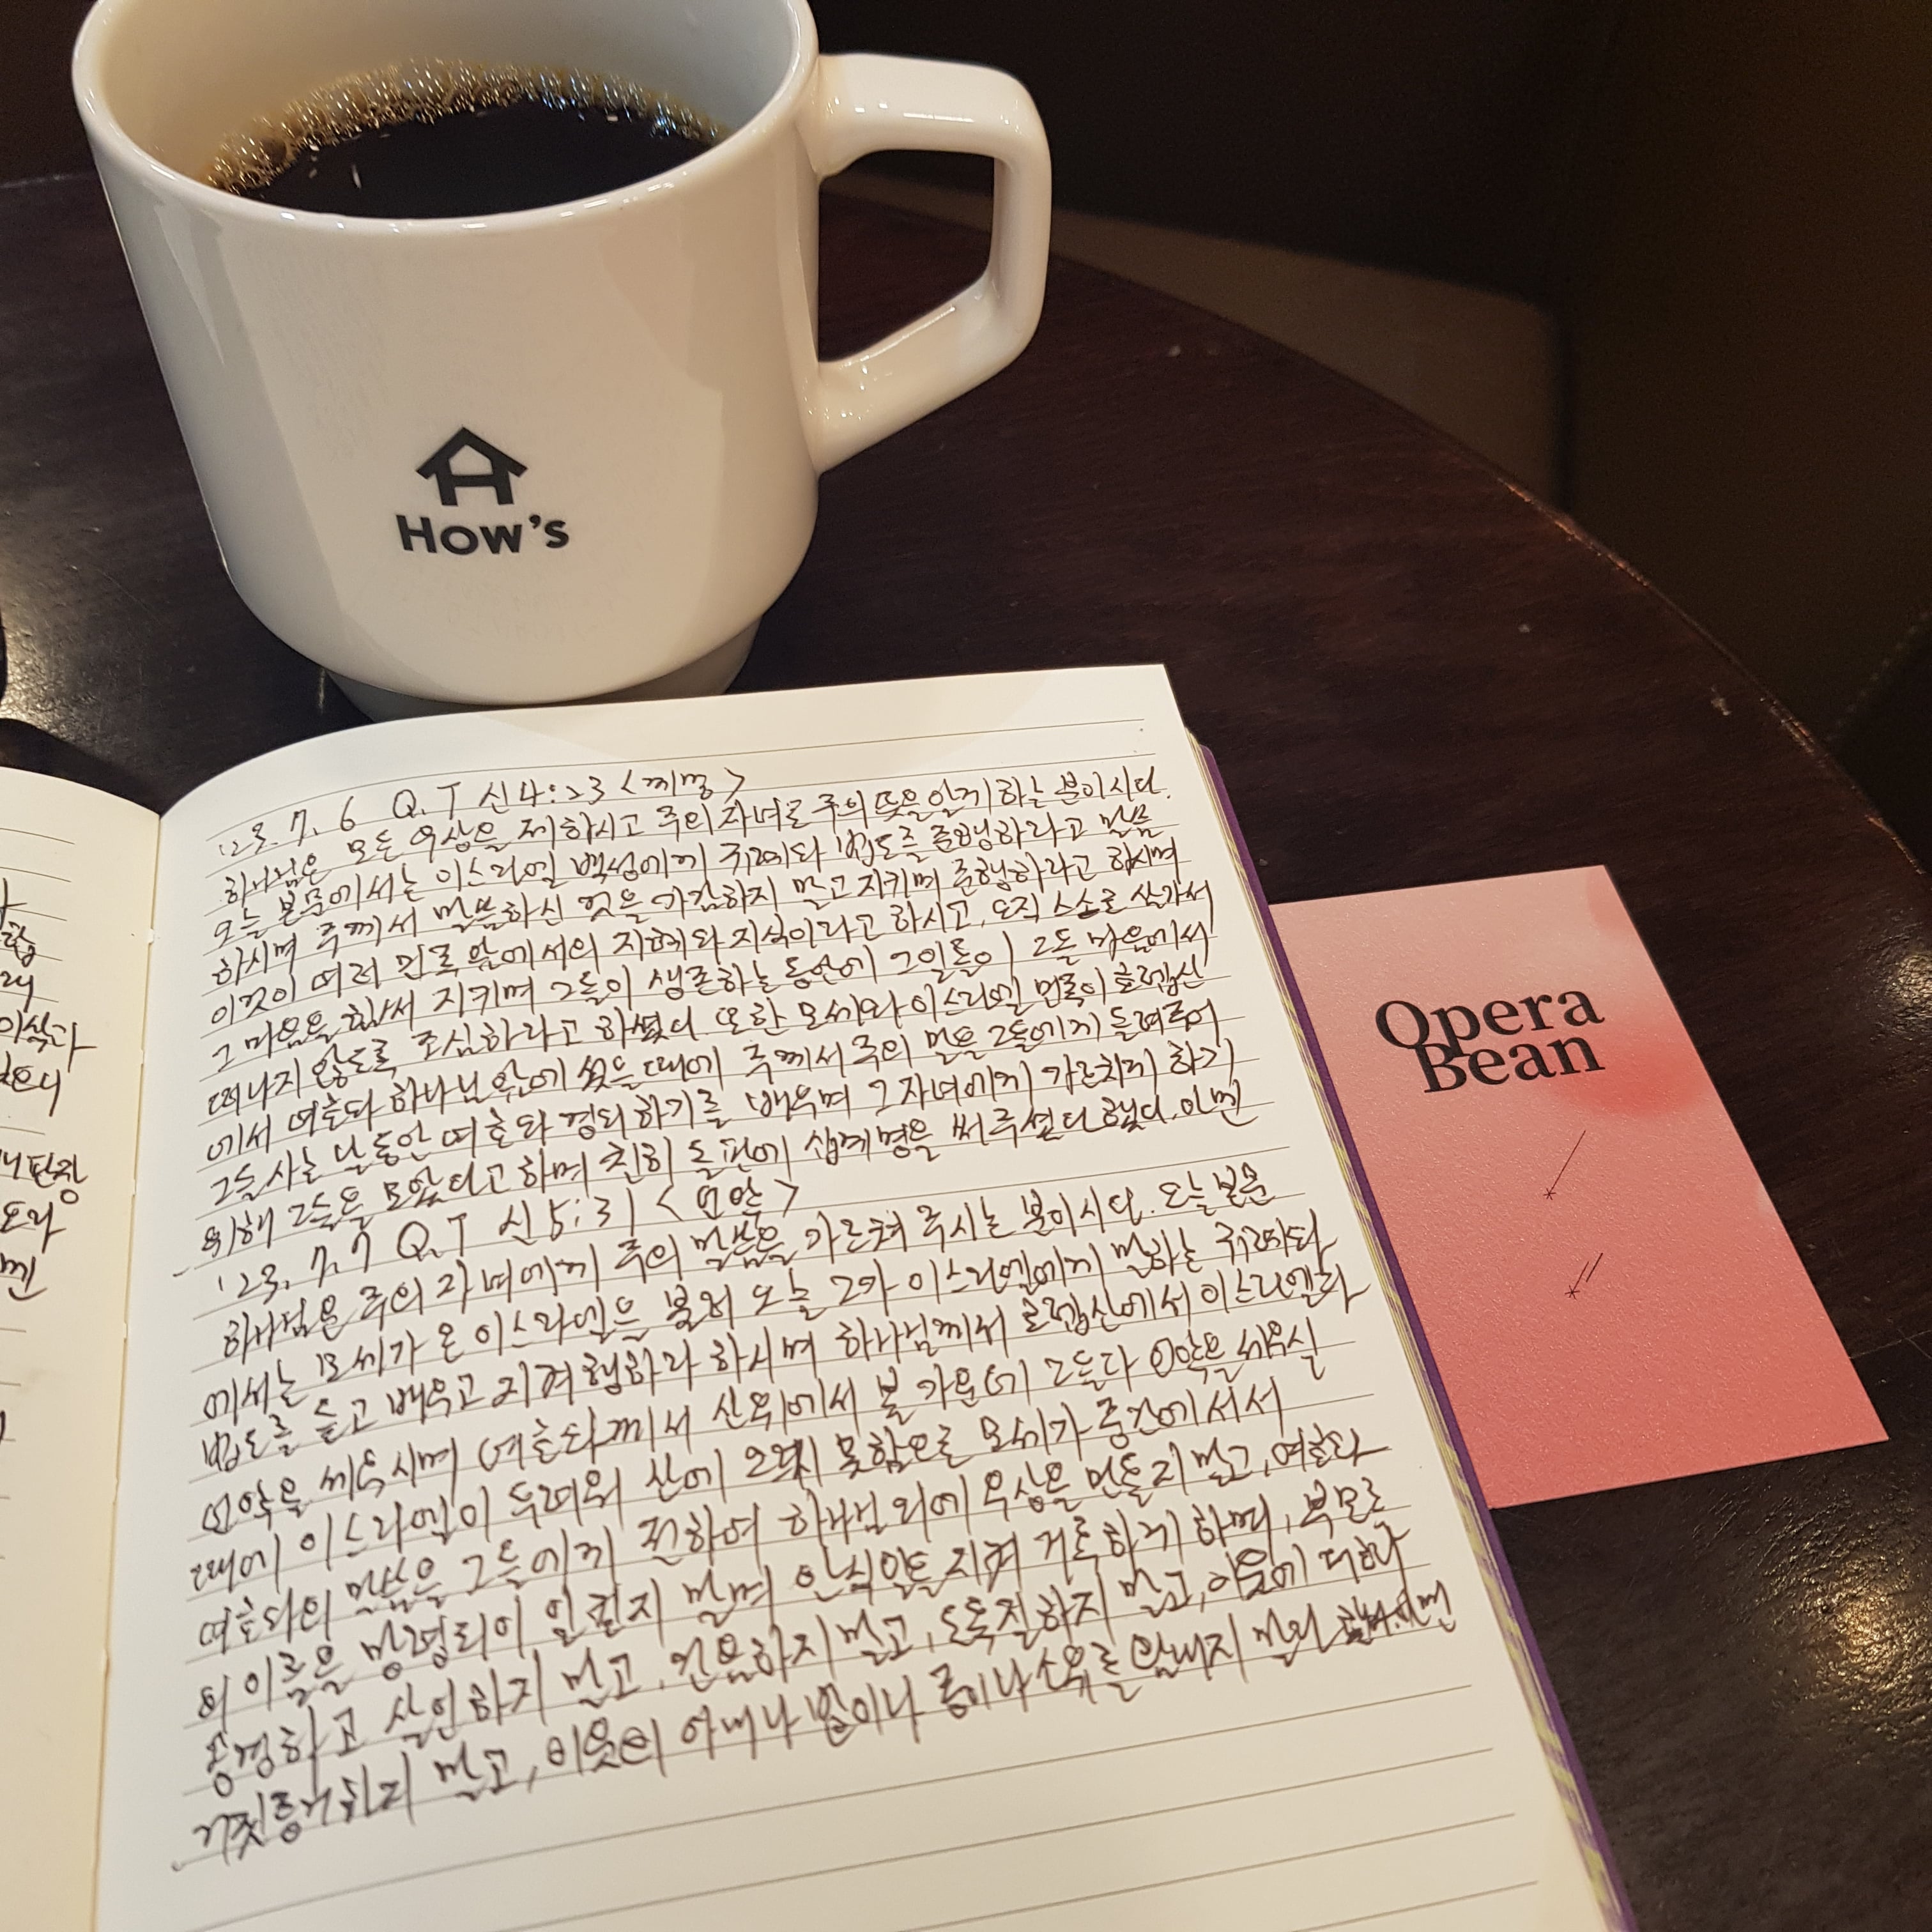 How's
Opera
Bean
'23. 7. 6 Q.T 신4:23 <계명>
하나님은 모든 우상을 제하시고 주의 자녀로 주의 뜻을 알게 하는 분이시다.
오늘 본문에서는 이스라엘 백성에게 규례와 법도를 준행하라고 말씀
하시며 주께서 말씀하신 것을 가감하지 말고 지키며 준행하라고 하시며
이것이 여러 민족 앞에서의 지혜와 지식이라고 하시고, 오직 스스로 삼가서
그 마음을 힘써 지키며 그들이 생존하는 동안에 그 일들이 그들 마음에서
떠나지 않도록 조심하라고 하셨다. 또한 모세와 이스라엘 민족이 호렙산
에서 여호와 하나님 앞에 섰을 때에 주께서 주의 말을 그들에게 들려주어
그들 사는 날 동안 여호와 경외하기를 배우며 그 자녀에게 가르치게 하기
위해 그들을 모았다고 하며 친히 돌판에 십계명을 써 주셨다 했다. 아멘
'23. 7. 7 Q.T 신5:31 <언약>
하나님은 주의 자녀에게 주의 말씀을 가르쳐 주시는 분이시다. 오늘 본문
에서는 모세가 온 이스라엘을 불러 오늘 그가 이스라엘에게 말하는 규례와
법도를 듣고 배우고 지켜 행하라 하시며 하나님께서 호렙산에서 이스라엘과
언약을 세우시며 여호와께서 산 위에서 불 가운데 그들과 언약을 세우실
때에 이스라엘이 두려워 산에 오르지 못함으로 모세가 중간에 서서
여호와의 말씀을 그들에게 전하여 하나님 외에 우상을 만들지 말고, 여호와
의 이름을 망령되이 일컫지 말며 안식일을 지켜 거룩하게 하며, 부모를
공경하고 살인하지 말고, 간음하지 말고, 도둑질하지 말고, 이웃에 대하여
거짓증거하지 말고, 이웃의 아내나 밭이나 종이나 소유를 탐내지 말라 아멘